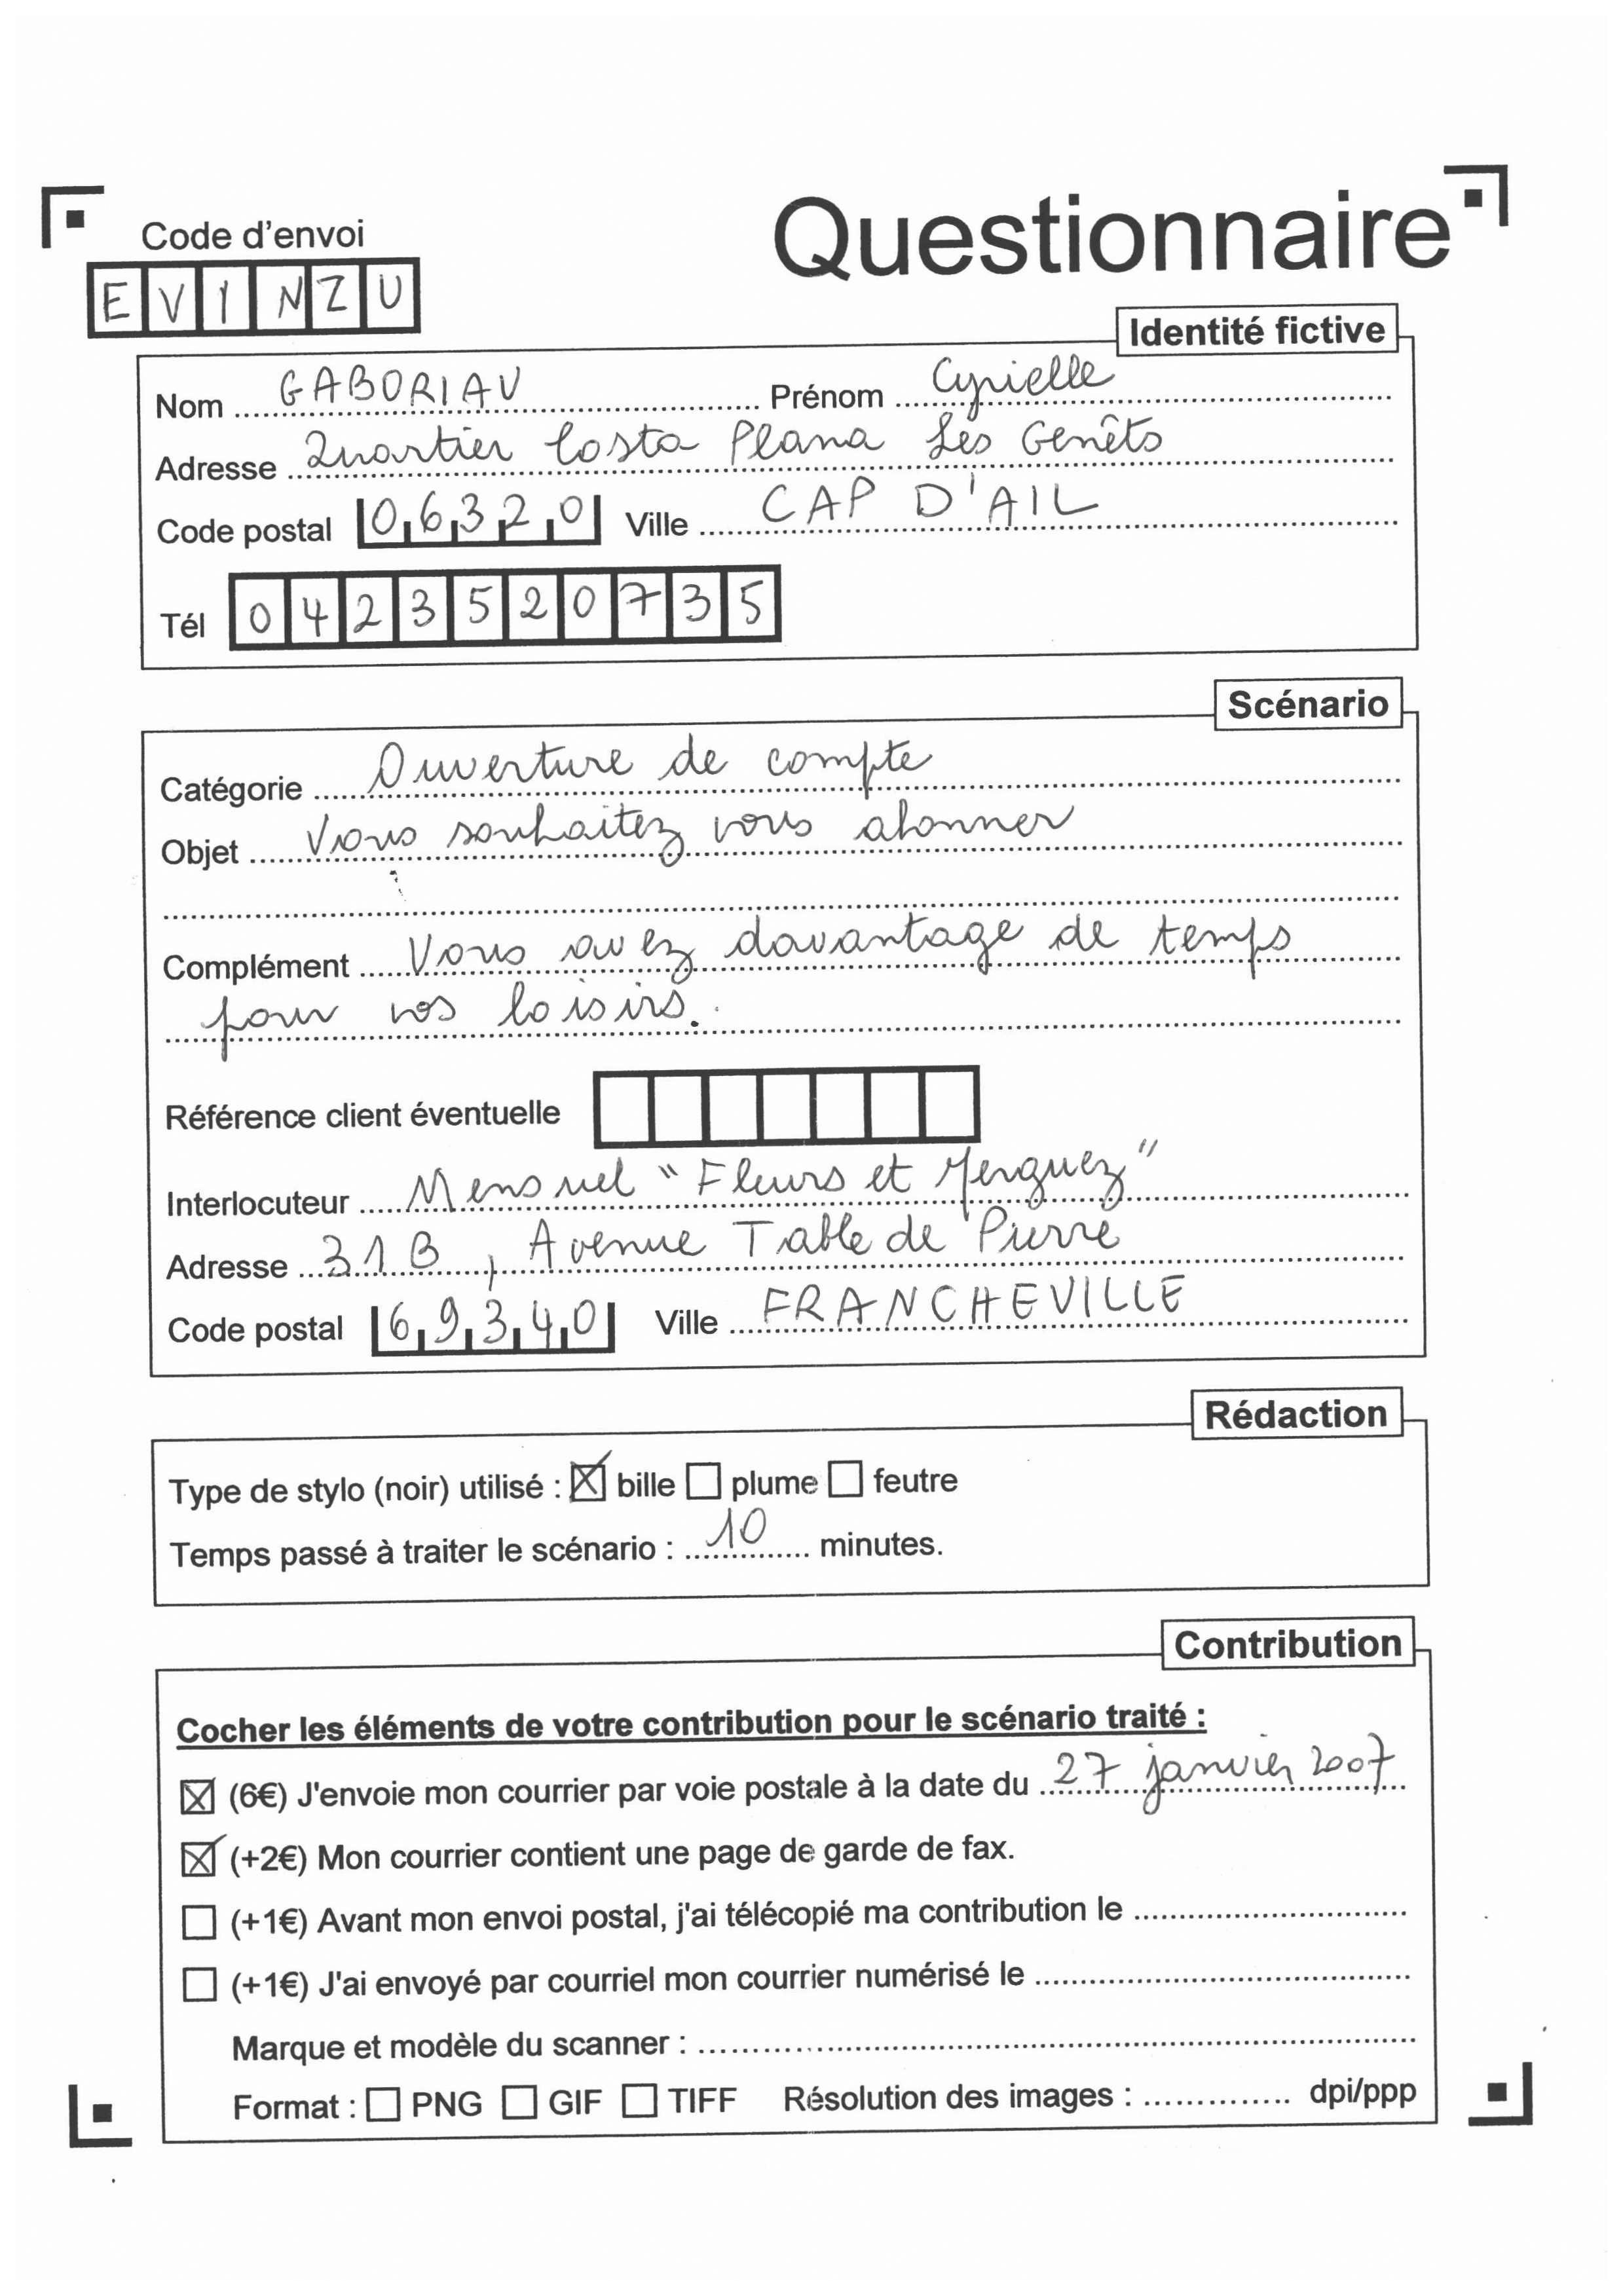 Questionnaire
Code d'envoi
E V I N Z U
Identité fictive
Nom GABORIAU Prénom Cyrielle
Adresse Quartier Costa Plana Les Genêts
Code postal 06320 Ville CAP D'AIL
Tél 0423520735
Scénario
Catégorie Ouverture de compte
Objet Vous souhaitez vous abonner
Complément Vous avez davantage de temps
pour vos loisirs.
Référence client éventuelle
Interlocuteur Mensuel "Fleurs et Merguez"
Adresse 31B, Avenue Table de Pierre
Code postal 69340 Ville FRANCHEVILLE
Rédaction
Type de stylo (noir) utilisé : ☒ bille ☐ plume ☐ feutre
Temps passé à traiter le scénario : 10 minutes.
Contribution
Cocher les éléments de votre contribution pour le scénario traité :
☒ (6€) J'envoie mon courrier par voie postale à la date du 27 janvier 2007
☒ (+2€) Mon courrier contient une page de garde de fax.
☐ (+1€) Avant mon envoi postal, j'ai télécopié ma contribution le
☐ (+1€) J'ai envoyé par courriel mon courrier numérisé le
Marque et modèle du scanner :
Format : ☐ PNG ☐ GIF ☐ TIFF Résolution des images : dpi/ppp